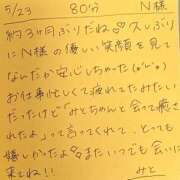 5/23 80分 N様
約3ヶ月ぶりだね♡久しぶり
にN様の優しい笑顔を見て
なんだか安心しちゃった(๑´ᵕ`๑)
お仕事忙しくて疲れてたみたい
だったけど「みとちゃんと会って癒され
たよ」って言ってくれて、とっても
嬉しかったよ♪またいつでも会いに
来てね!!
みと